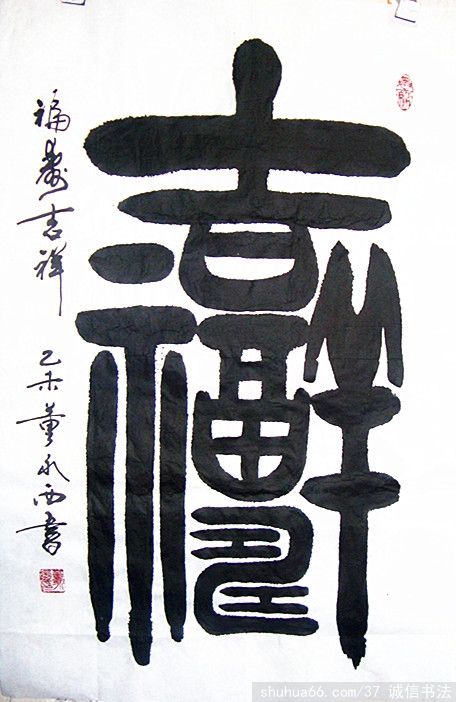 福寿吉祥
乙未董永西書
shuhua66.com/37 诚信书法